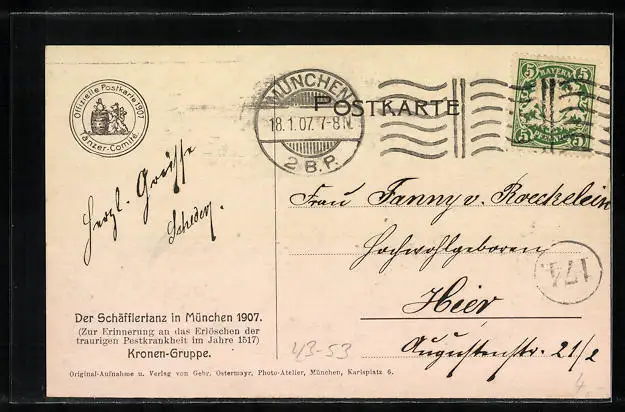 Offizielle Postkarte 1907
Tänzer-Comité.
MÜNCHEN
18.1.07. 7-8 N.
2 B.P.
POSTKARTE
5 BAYERN 5
5 PFENNIG 5
Herzl. Grüsse
Frau Fanny v. Roeckelein
Hochwohlgeboren
174
Hier
Augustenstr. 21/2
Der Schäfflertanz in München 1907.
(Zur Erinnerung an das Erlöschen der
traurigen Pestkrankheit im Jahre 1517)
Kronen-Gruppe.
43-53
4.-
Original-Aufnahme u. Verlag von Gebr. Ostermayr, Photo-Atelier, München, Karlsplatz 6.